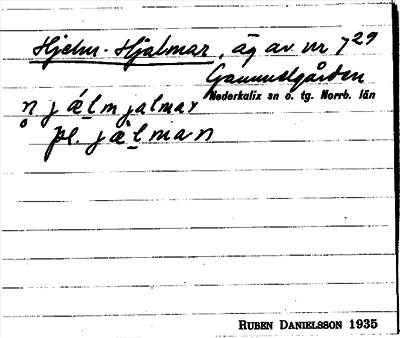 Hjelm-Hjalmar, äg av nr 7²⁹
Gammelgården
Nederkalix sn o. tg. Norrb. län
n̥ jálmjalmar
pl. jàlman
RUBEN DANIELSSON 1935